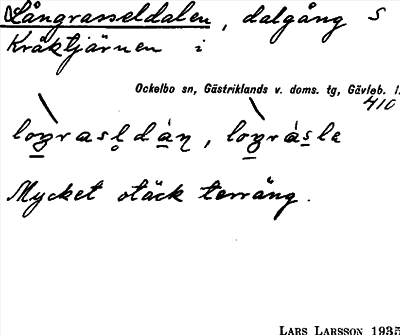 Långrasseldalen, dalgång S
Kråktjärnen i
Ockelbo sn, Gästriklands v. doms. tg, Gävleb. l.
410
Mycket otäck terräng.
LARS LARSSON 1935